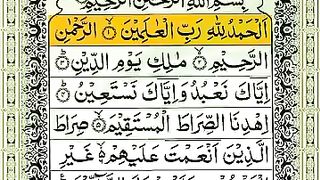 بِسْمِ اللّٰهِ الرَّحْمٰنِ الرَّحِیْمِ
اَلْحَمْدُ لِلّٰهِ رَبِّ الْعٰلَمِیْنَ ۙ﴿۱﴾ الرَّحْمٰنِ
الرَّحِیْمِ ۙ﴿۲﴾ مٰلِكِ یَوْمِ الدِّیْنِ ؕ﴿۳﴾
اِیَّاكَ نَعْبُدُ وَ اِیَّاكَ نَسْتَعِیْنُ ؕ﴿۴﴾
اِهْدِنَا الصِّرَاطَ الْمُسْتَقِیْمَ ۙ﴿۵﴾ صِرَاطَ
الَّذِیْنَ اَنْعَمْتَ عَلَیْهِمْ ۙ۬﴿۶﴾ غَیْرِ